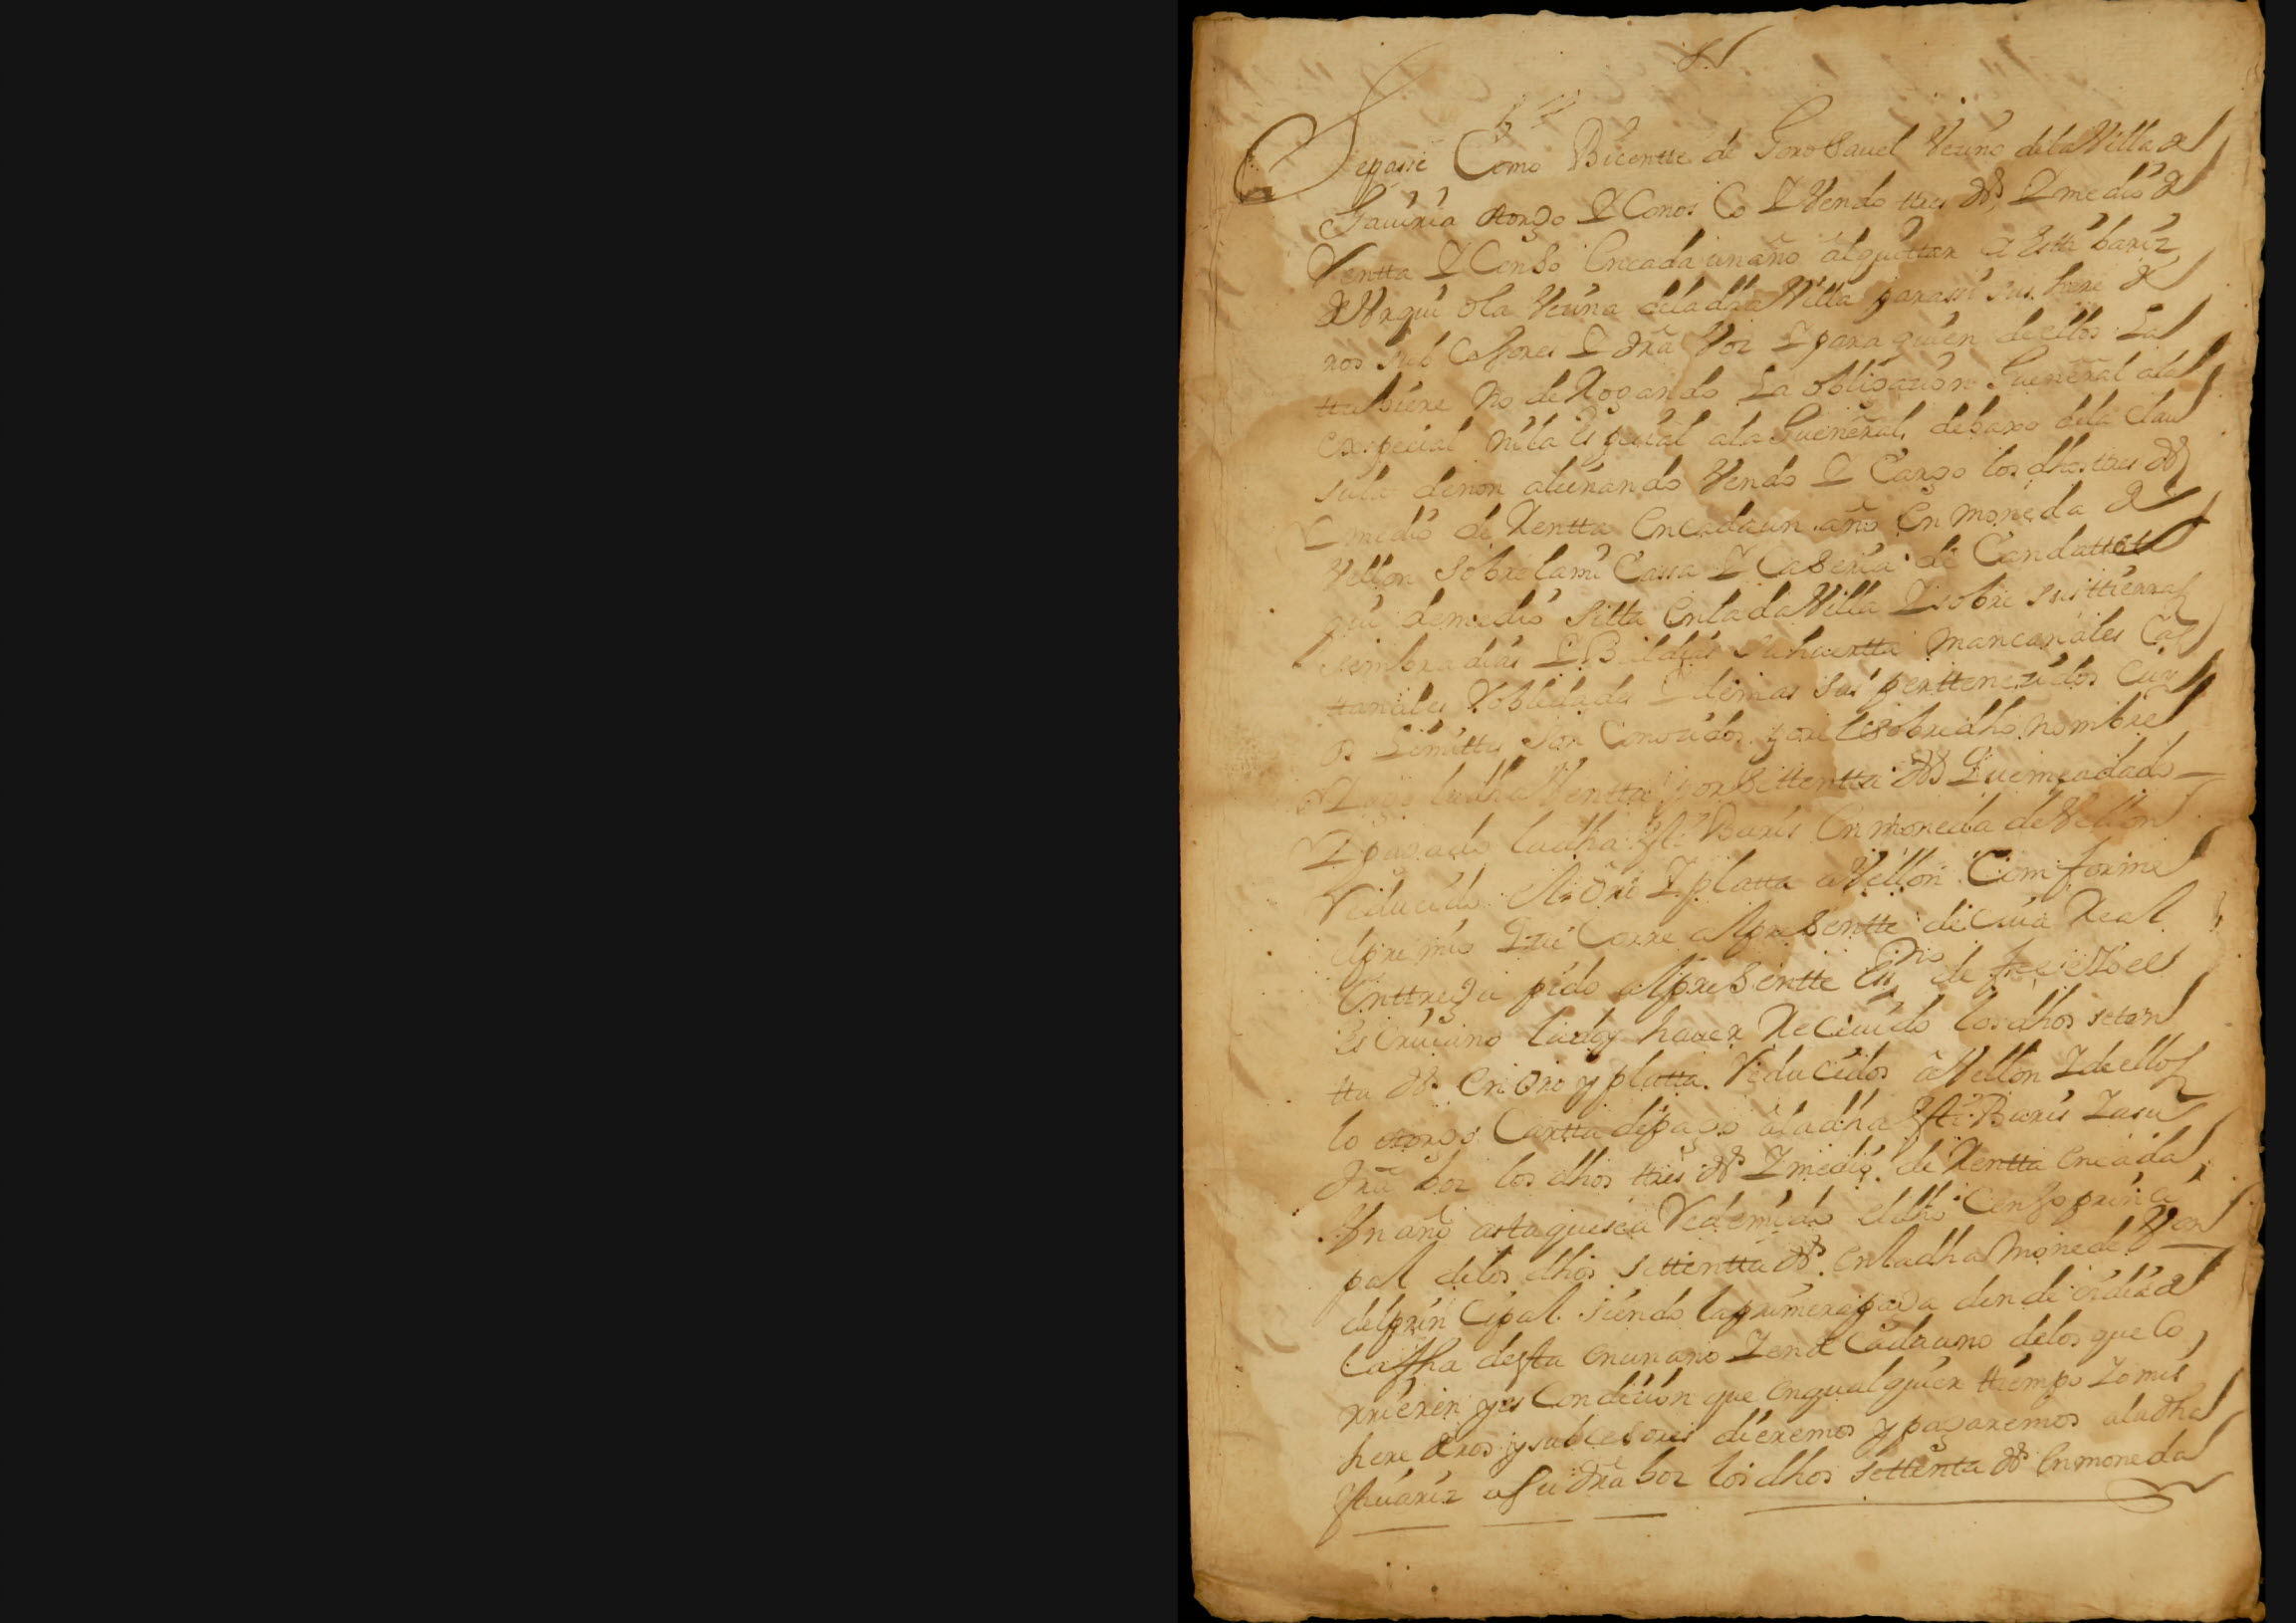 Sepasse Como Bicentte de Goro Sauel Vecino dela Villa de
Gauiria otorgo Y Conosco Y Vendo tres ds Y medio de
Rentta Y Censo Encada un año alquittar a Estti bariz
de Urqui ola Vecina dela dha Villa para si sus here de
ros sub cesores Y dra Voz Y para quien de ellos La
ttubiere no de Rogando La obligacion Gueneral ala
expecial ni la especial ala Gueneral, debaxo dela clau
sula denon alienando Vendo Y Cargo los dhos tres ds
Y medio de Rentta Encada un año En moneda de
Vellon Sobre la mi Cassa Y Caseria de
gui demedio Sitta En la dha Villa Y sobre sus ttierras
sembradias Y Baldias Su huertta mancanales Cas
tanales Robledades Y demas sus perttenecidos Cuy
os Limittes Son Conocidos por el sobre dho nombre
Y ago la dha Ventta por settentta ds Que me a dado
Y pagado la dha Este Baris En moneda de Vellon
Reducido el oro Y platta a Vellon Comforme
el premio Que Corre al presentte de cuia Real
Enttrega pido al presentte essno de fee Yo el
Escriuano la doy hauer Receuido los dhos seten
tta ds En oro y platta Reducidos a Vellon Y de ellos
lo otorgo Cartta de pago a la dha Este Baris Y a su
dra boz los dhos tres ds Y medio de Rentta Encada
Un año asta que sea Redemido el dho Censo princi
pal delos dhos settentta ds En la dha Moneda
del prin Cipal siendo la primera paga dende oi dia de
la fha desta en un año Y en de Cada uno delos que Co
rrieren y es Condicion que en qual quier ttiempo Yo mis
here deros y sub cesores dieremos y pagaremos ala dha
Esteuariz a su dra boz los dhos settenta ds En moneda